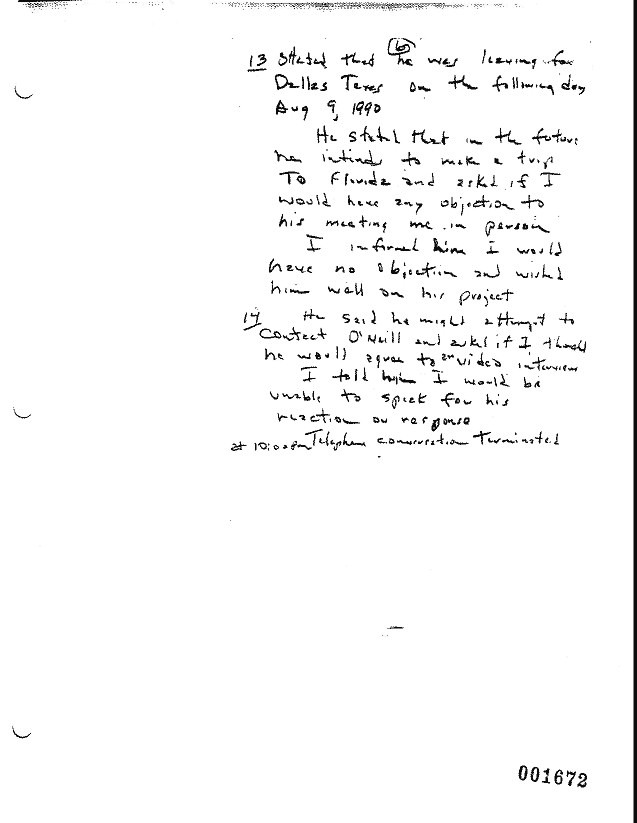 (6)
13 Stated that he was leaving for
Dallas Texas on the following day
Aug 9, 1990
He stated that in the future
he intends to make a trip
To Florida and asked if I
would have any objection to
his meeting me in person
I informed him I would
have no objection and wished
him well on his project
14 He said he might attempt to
Contact O'Neill and asked if I thought
he would agree to an video interview
I told him I would be
unable to speak for his
reaction or response
at 10:00pm Telephone conversation Terminated
001672